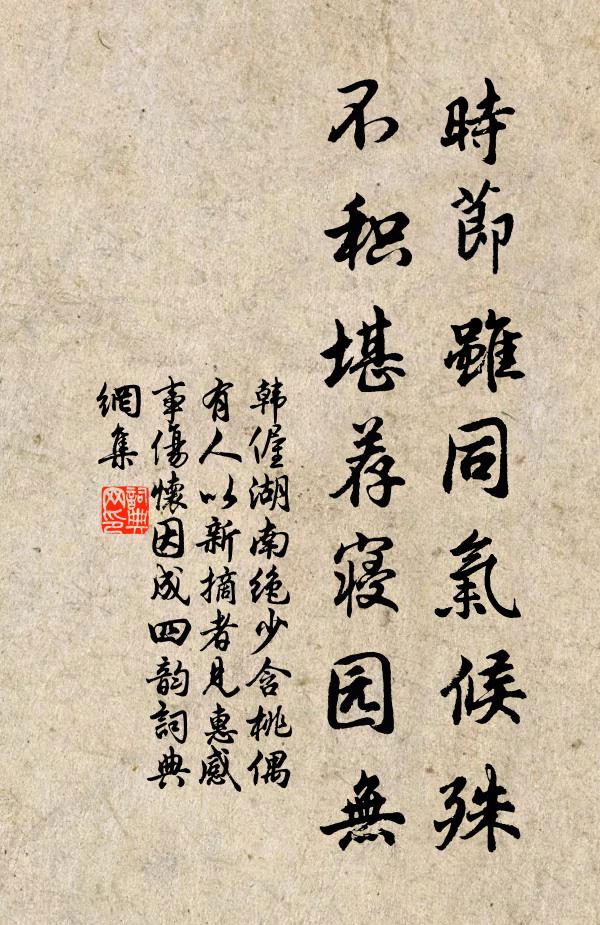 時節雖同氣候殊
不积堪荐寝园無
韩偓湖南绝少含桃偶
有人以新摘者見惠感
事傷懷因成四韵詞典
網集
詞典网印